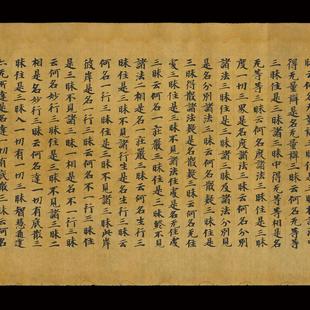 得无量辯是名无量辯三昧云何名无等等
三昧住是三昧得无等等相是名
无等等三昧云何名度諸法三昧住是三昧
度一切三界是名度諸法三昧云何名分別
諸法三昧住是三昧諸三昧及諸法分別見
是名分別諸法三昧云何名散疑三昧住是
三昧得散諸法疑是名散疑三昧云何名无住
處三昧住是三昧不見諸法住處是名无住處
三昧云何名一莊嚴三昧住是三昧終不見
諸法二相是名一莊嚴三昧云何名生行三
昧住是三昧不見諸行生是名生行三昧云
何名一行三昧住是三昧不見諸三昧此岸
彼岸是名一行三昧云何名不一行三昧住
是三昧不見諸三昧一相是名不一行三昧
云何名妙行三昧住是三昧不見諸三昧二
相是名妙行三昧云何名達一切有底散三
昧住是三昧入一切有一切三昧智慧通達
亦无所達是名達一切有底散三昧云何名